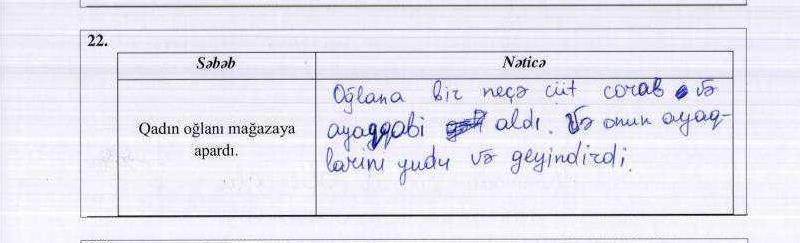 22.
Səbəb
Nəticə
Qadın oğlanı mağazaya
apardı.
Oğlana bir neçə cüt corab və
ayaqqabi aldı. Və onun ayaq-
larini yudu və geyindirdi.